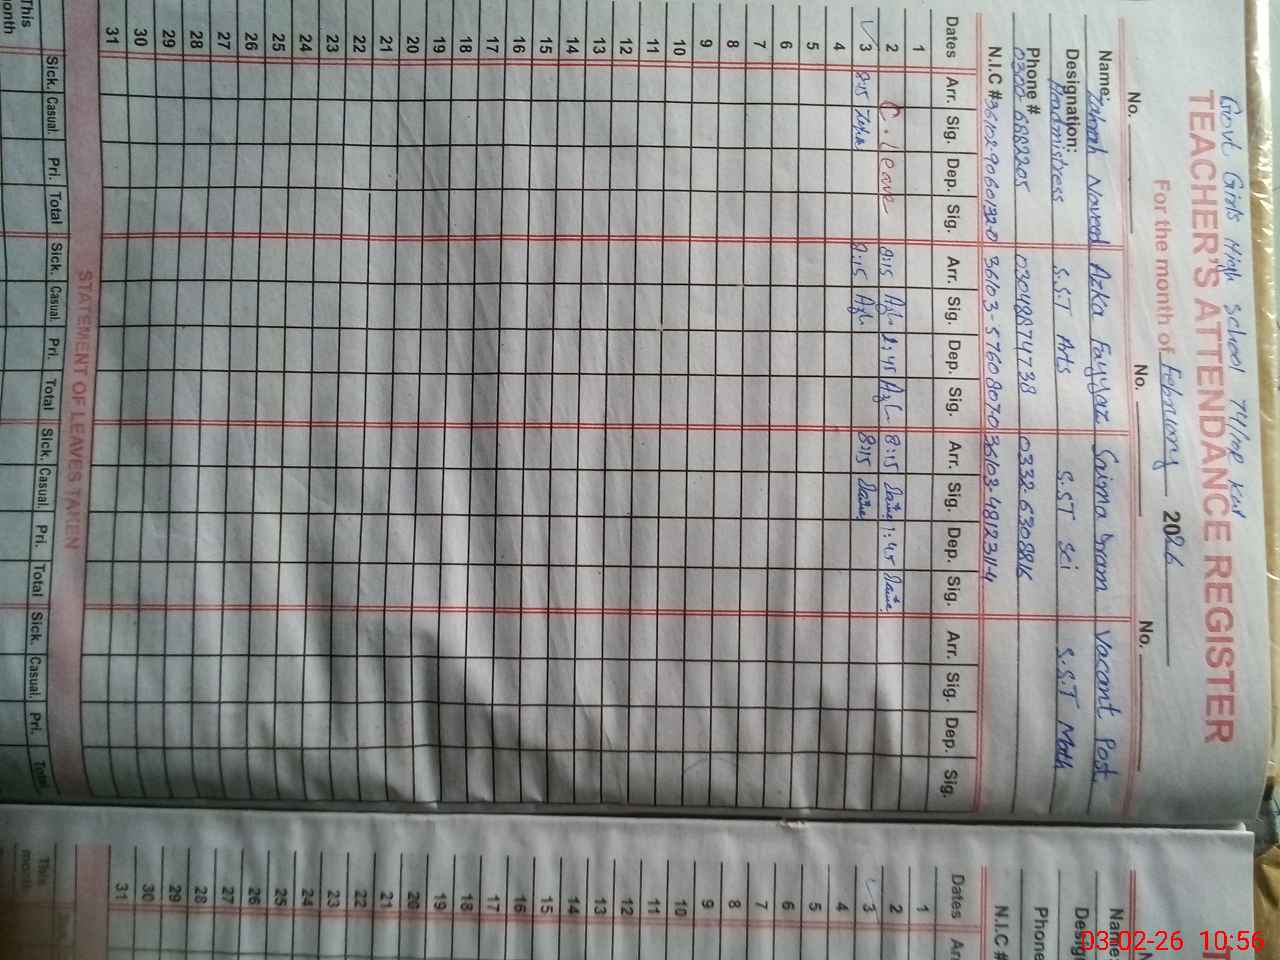 Govt Girls High School 74/10R Kwl
TEACHER'S ATTENDANCE REGISTER
For the month of February 2026
No. No. No.
Name: Naveed Azka Fayyaz Saima Vacant Post
Designation: Headmistress S.S.T Arts S.ST Sci S.S.T Math
Phone # 0300-6882205 03048874738 0332-6308816
N.I.C #
Dates Arr. Sig. Dep. Sig. Arr. Sig. Dep. Sig. Arr. Sig. Dep. Sig. Arr. Sig. Dep. Sig.
1
2 C. Leave 8:15 1:45 8:15 1:45
3 8:15 8:15 8:15
4
5
6
7
8
9
10
11
12
13
14
15
16
17
18
19
20
21
22
23
24
25
26
27
28
29
30
31
STATEMENT OF LEAVES TAKEN
Sick. Casual. Pri. Total Sick. Casual. Pri. Total Sick. Casual. Pri. Total Sick. Casual. Pri. Total
This
month
Name:
Phone
N.I.C #
Dates
1
2
3
4
5
6
7
8
9
10
11
12
13
14
15
16
17
18
19
20
21
22
23
24
25
26
27
28
29
30
31
This
month
03-02-26 10:56